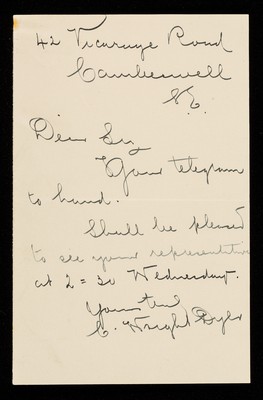 42 Vicarage Road
Camberwell
S.E.
Dear Sir,
Your telegram
to hand.
Shall be pleased
to see your representative
at 2=30 Wednesday.
Yours
C. Wright